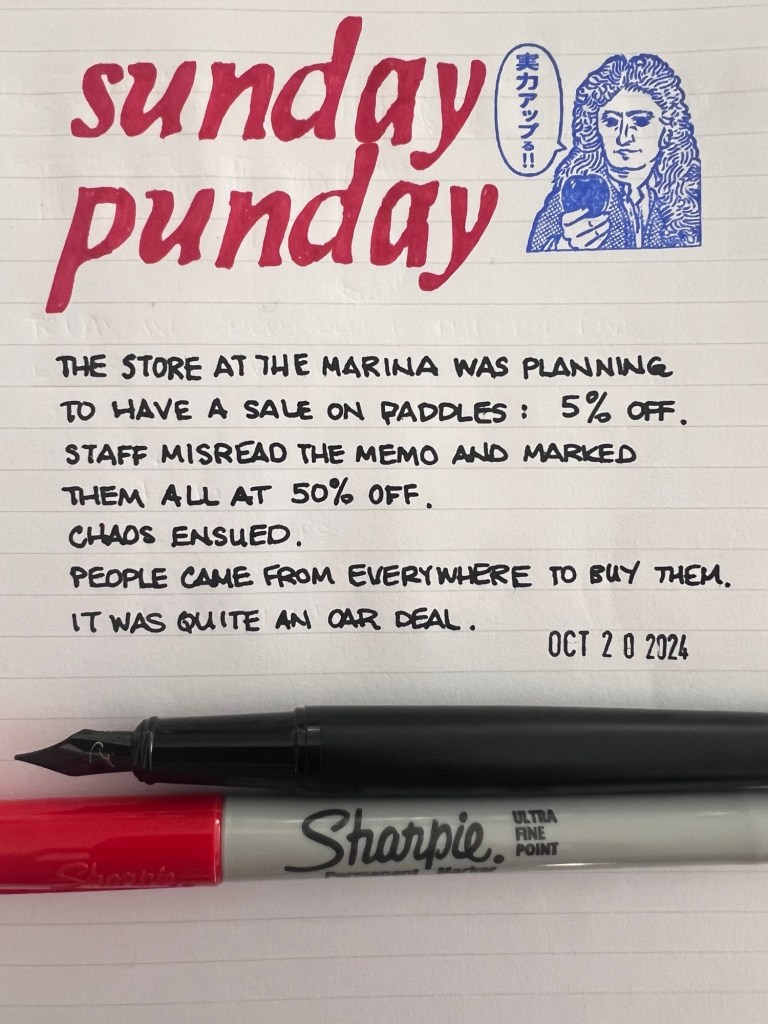 sunday
punday
実力アップる!!
THE STORE AT THE MARINA WAS PLANNING
TO HAVE A SALE ON PADDLES: 5% OFF.
STAFF MISREAD THE MEMO AND MARKED
THEM ALL AT 50% OFF.
CHAOS ENSUED.
PEOPLE CAME FROM EVERYWHERE TO BUY THEM.
IT WAS QUITE AN OAR DEAL.
OCT 20 2024
Sharpie.
ULTRA
FINE
POINT
Permanent Marker
Sharpie